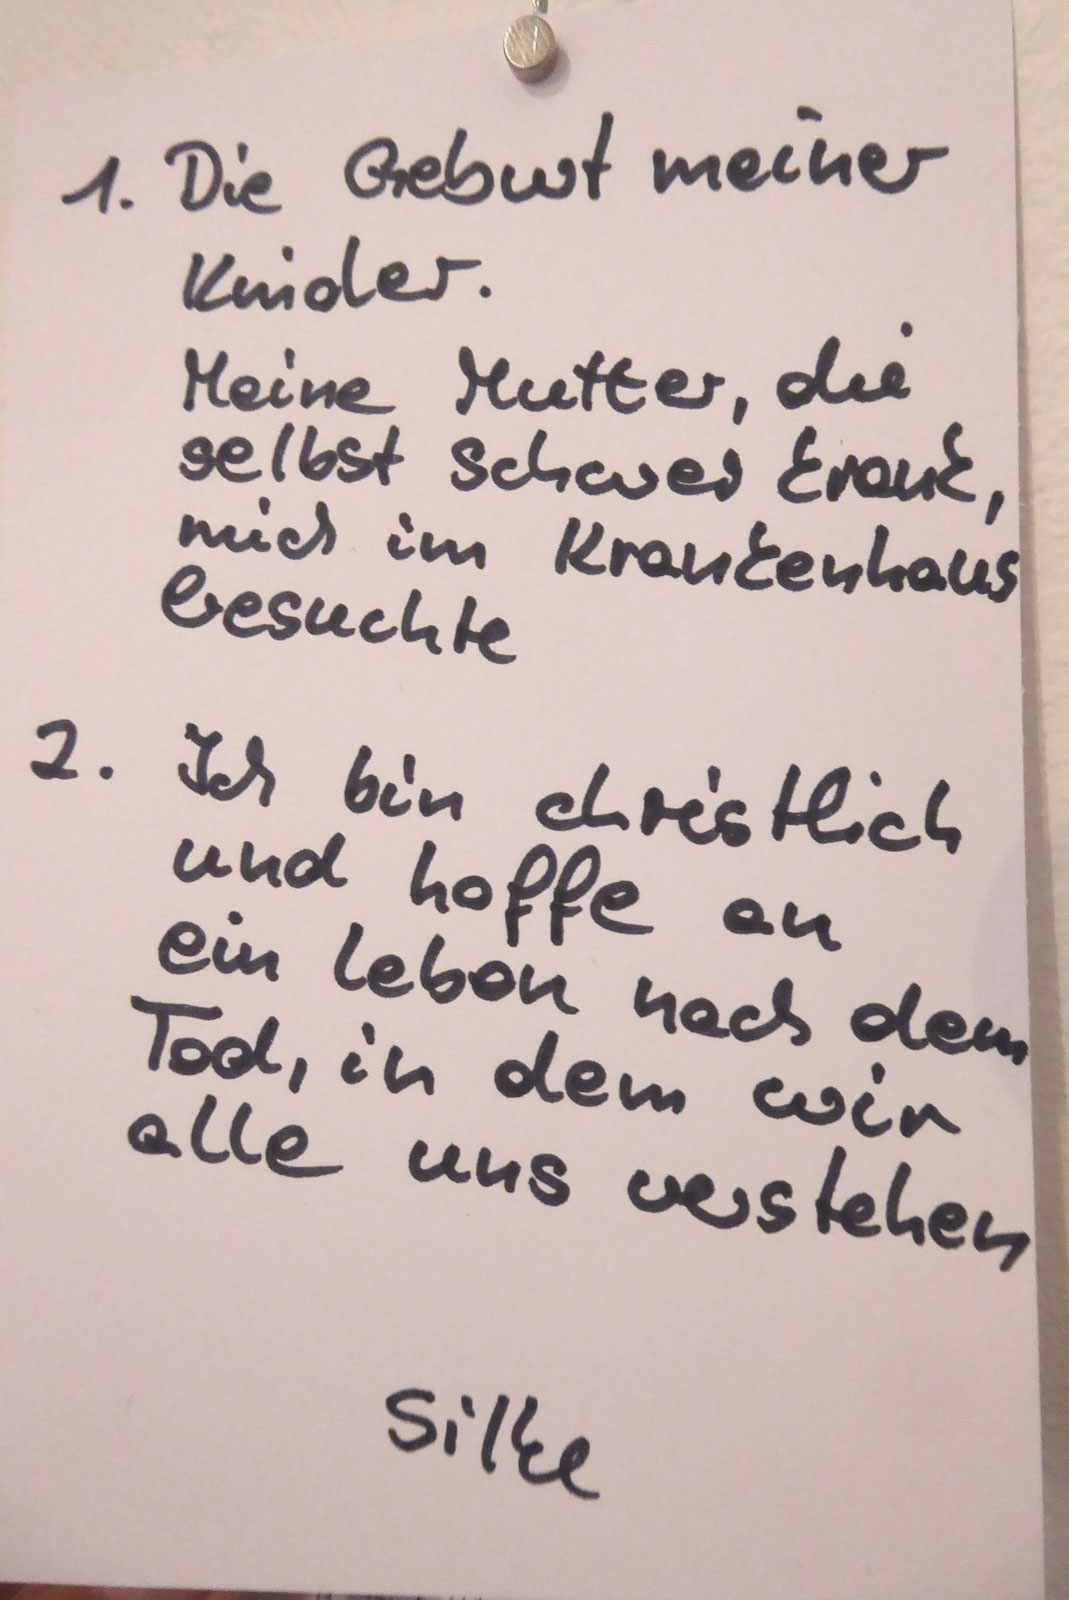 1. Die Geburt meiner
Kinder.
Meine Mutter, die
selbst schwer krank,
mich im Krankenhaus
besuchte
2. Ich bin christlich
und hoffe an
ein leben nach dem
Tod, in dem wir
alle uns verstehen
Silke